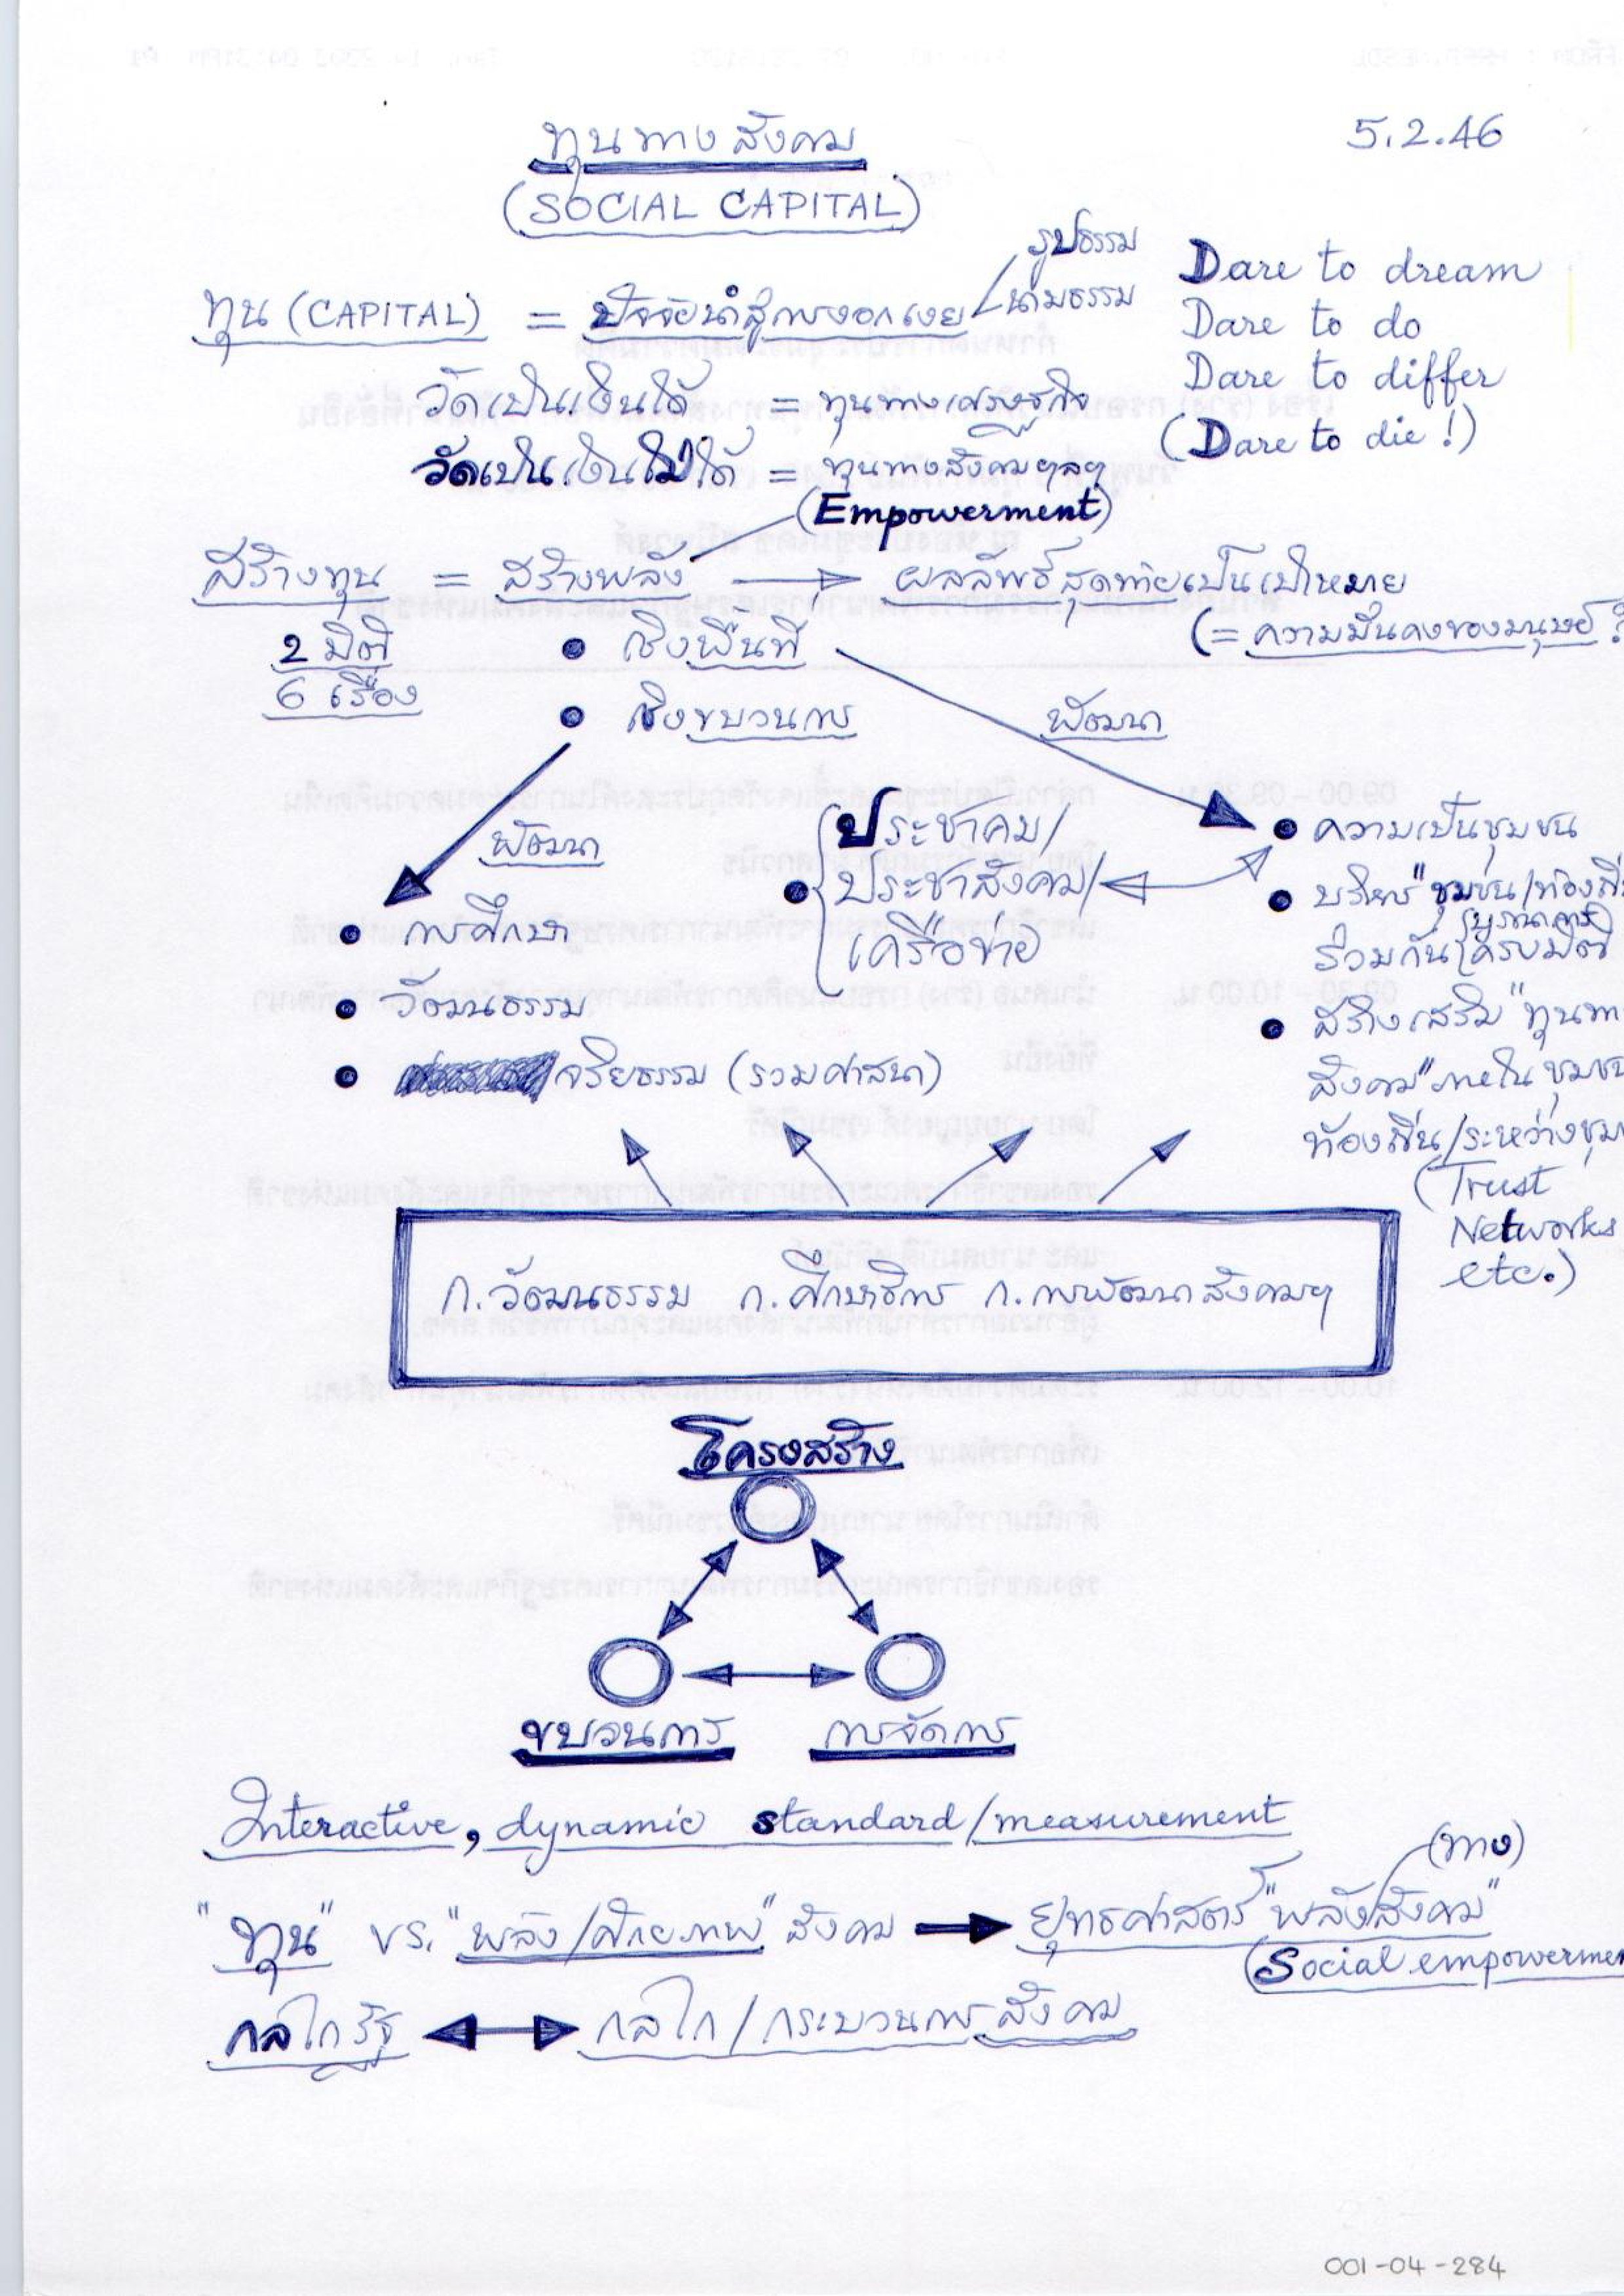 ทุนทางสังคม
5.2.46
(SOCIAL CAPITAL)
ทุน (CAPITAL) = ปัจจัยนำสู่การงอกเงย
รูปธรรม
นามธรรม
Dare to dream
Dare to do
Dare to differ
(Dare to die!)
วัดเป็นเงินได้ = ทุนทางเศรษฐกิจ
วัดเป็นเงินไม่ได้ = ทุนทางสังคมฯลฯ
(Empowerment)
สร้างทุน = สร้างพลัง → ผลลัพธ์สุดท้ายเป็นเป้าหมาย
(= ความมั่นคงของมนุษย์ ?
2 มิติ
6 เรื่อง
• เชิงพื้นที่
• เชิงขบวนการ
พัฒนา
พัฒนา
• การศึกษา
• วัฒนธรรม
• จริยธรรม (รวมศาสนา)
• ประชาคม/
ประชาสังคม/
เครือข่าย
• ความเป็นชุมชน
• บริหาร "ชุมชน/
(บูรณาการ)
ร่วมกัน ครบมิติ
• สร้างเสริม "ทุน
สังคม" ภายใน
ท้องถิ่น/ระหว่าง
(Trust
Networks
etc.)
ก.วัฒนธรรม ก.ศึกษาธิการ ก.การพัฒนาสังคมฯ
โครงสร้าง
ขบวนการ การจัดการ
Interactive, dynamic standard/measurement
(ทาง)
"ทุน" vs. "พลัง/ศักยภาพ" สังคม → ยุทธศาสตร์ "พลัง/สังคม"
(Social
กลไกรัฐ ↔ กลไก/กระบวนการสังคม
001-04-284